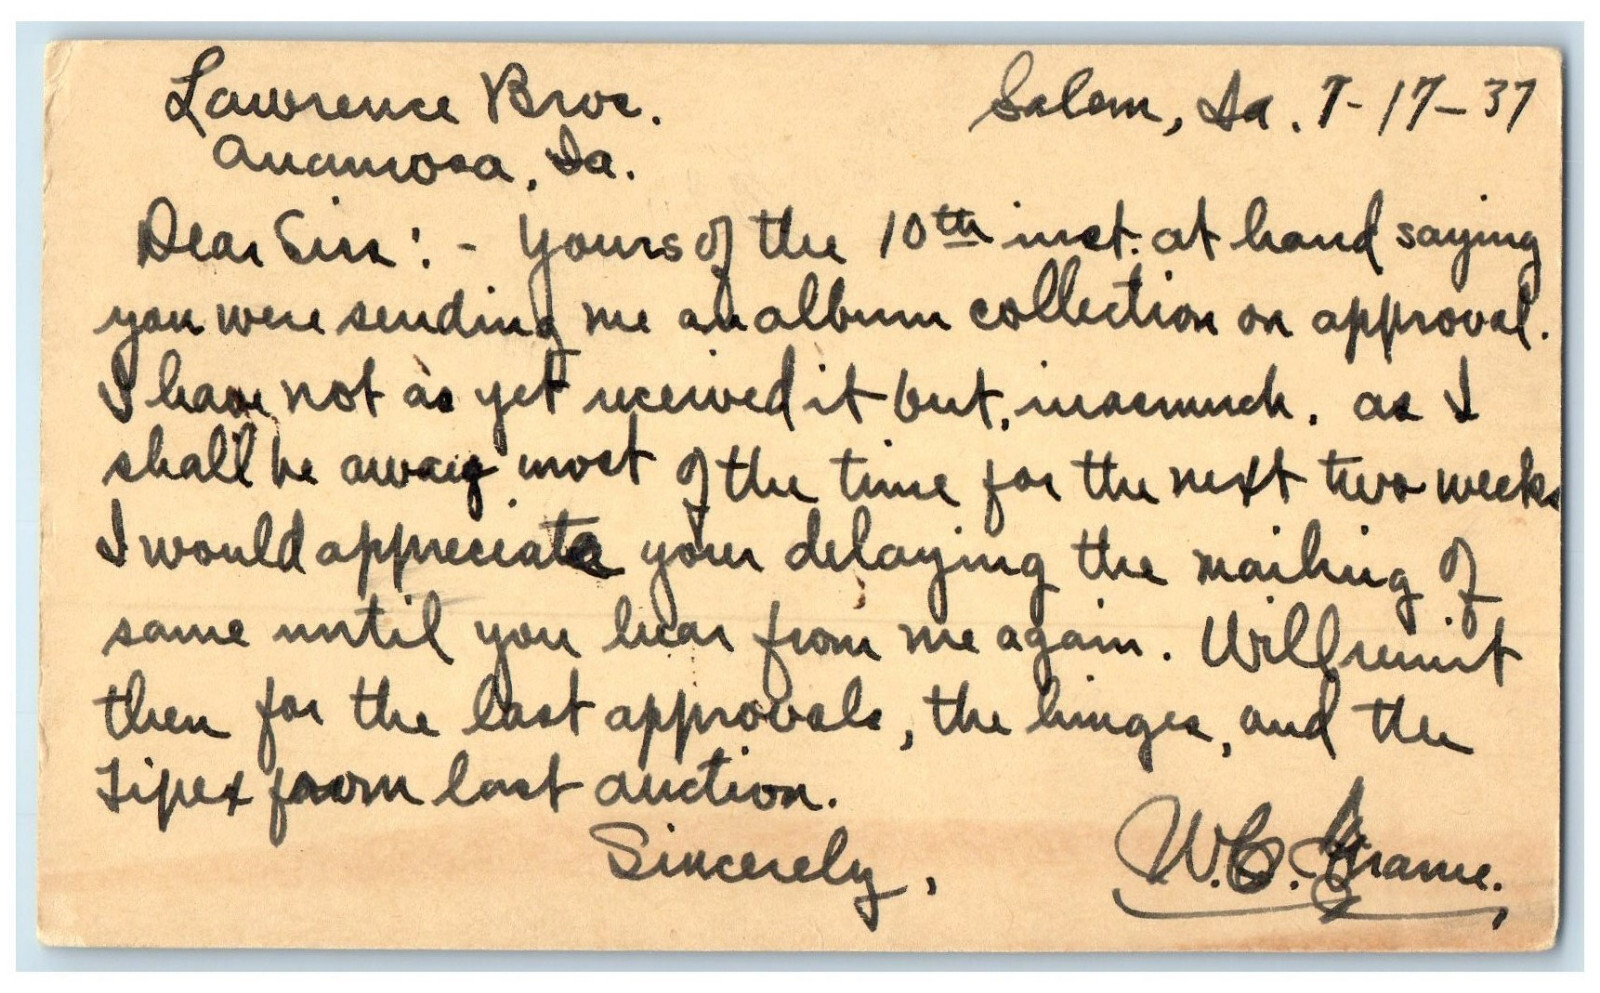 Lawrence Bros.
Salem, Ia. 7-17-37
Anamosa, Ia.
Dear Sirs: - Yours of the 10th inst. at hand saying
you were sending me an album collection on approval.
I have not as yet received it but, inasmuch. as I
shall be away most of the time for the next two weeks
I would appreciate your delaying the mailing of
same until you hear from me again. Will remit
then for the last approvals, the hinges, and the
from last auction.
Sincerely,
W.C.